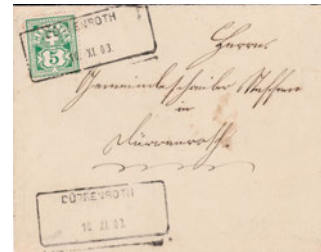 DÜRRENROTH
10. XI. 03.
5
Herrn
Gemeindeschreiber
in
Dürrenroth
DÜRRENROTH
10. XI. 03.